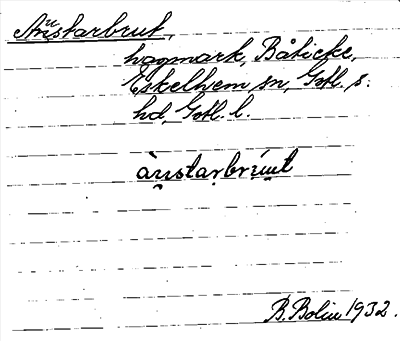 Austarbrut,
hagmark, Båticke,
Eskelhem sn, Gotl. s.
hd, Gotl. l.
àu̯starbrúu̯t
B. Bolin 1932.